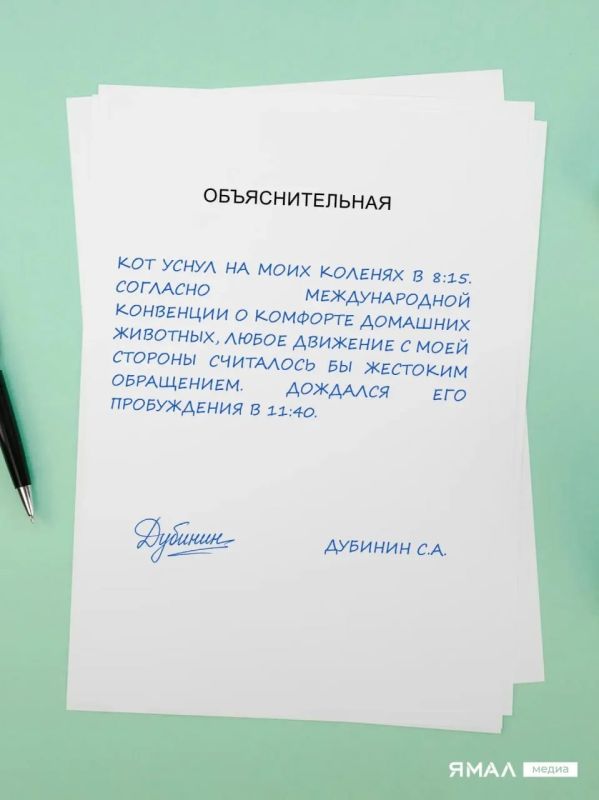 ОБЪЯСНИТЕЛЬНАЯ
КОТ УСНУЛ НА МОИХ КОЛЕНЯХ В 8:15.
СОГЛАСНО МЕЖДУНАРОДНОЙ
КОНВЕНЦИИ О КОМФОРТЕ ДОМАШНИХ
ЖИВОТНЫХ, ЛЮБОЕ ДВИЖЕНИЕ С МОЕЙ
СТОРОНЫ СЧИТАЛОСЬ БЫ ЖЕСТОКИМ
ОБРАЩЕНИЕМ. ДОЖДАЛСЯ ЕГО
ПРОБУЖДЕНИЯ В 11:40.
Дубинин ДУБИНИН С.А.
ЯМАЛ медиа